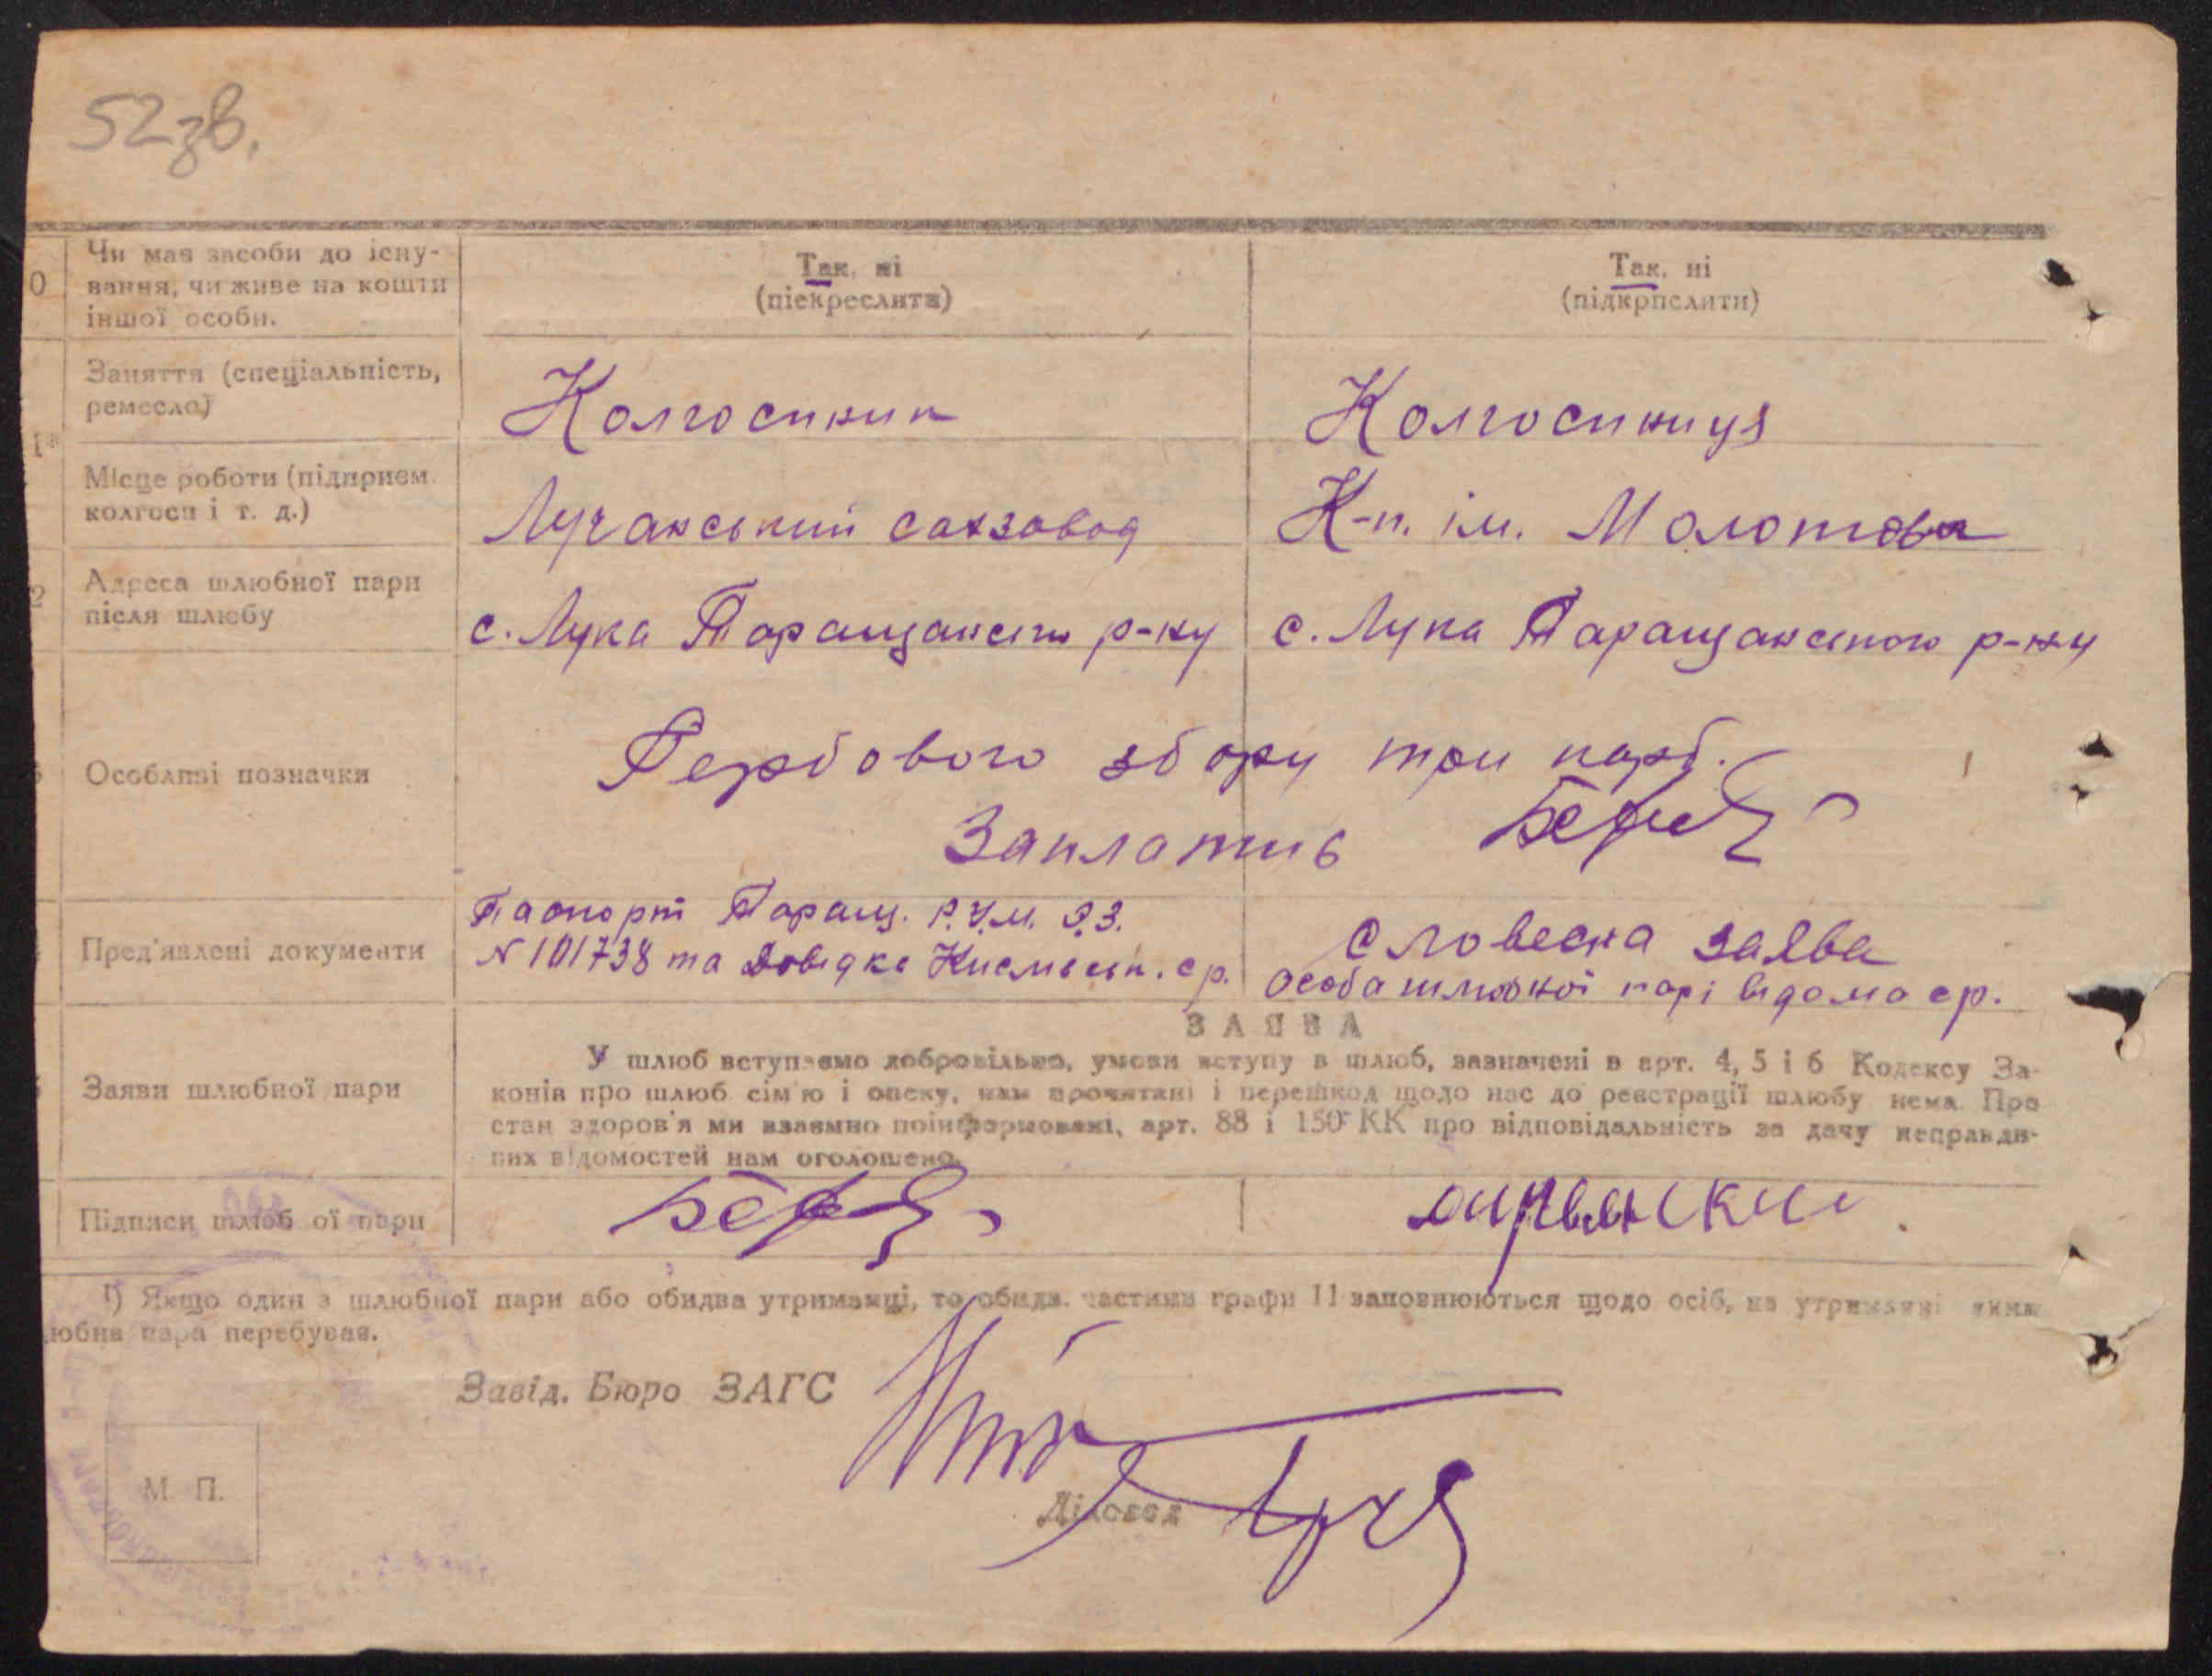 52зв.
0 Чи має засоби до існу-
вання, чи живе на кошти
іншої особи.
Так, ні
(піекреслити)
Так, ні
(підкрпслити)
Заняття (спеціальність,
ремесло)
Колгоспник
Колгоспниця
Місце роботи (підприєм.
колгосп і т. д.)
Лучанський сахзавод
К-п. ім. Молотова
2 Адреса шлюбної пари
після шлюбу
с. Лука Таращанськ р-ну
с. Лука Таращанського р-ну
Особливі позначки
Гербового збору три карб.
Заплатив
Пред'явлені документи
Паспорт Таращ. Р.У.М.
N 101738 та Довідка ср.
Словесна заява
особа шлюбної парі відома ср.
ЗАЯВА
Заяви шлюбної пари
У шлюб вступаємо добровільно, умови вступу в шлюб, зазначені в арт. 4, 5 і 6 Кодексу За-
конів про шлюб сім'ю і опеку, нам прочитані і перешкод щодо нас до реєстрації шлюбу нема. Про
стан здоров'я ми взаємно поінформовані, арт. 88 і 150 КК про відповідальність за дачу неправди-
вих відомостей нам оголошено.
Підписи шлюб ої пари
¹) Якщо один з шлюбної пари або обидва утриманці, то обидв. частини графи 11 заповнюються щодо осіб, на утриманні яких
юбна пара перебуває.
Завід. Бюро ЗАГС
М. П.
Діловод